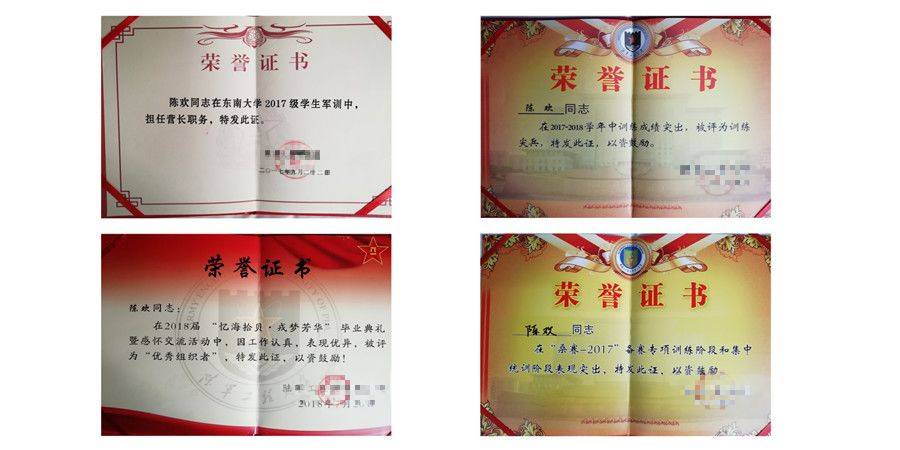 荣誉证书
陈欢同志在东南大学2017级学生军训中，
担任营长职务，特发此证。
二〇一七年九月二十二日
荣誉证书
陈欢同志
在2017-2018学年中训练成绩突出，被评为训练
尖兵，特发此证，以资鼓励。
荣誉证书
陈欢同志：
在2018届“忆海拾贝·戎梦芳华”毕业典礼
暨感怀交流活动中，因工作认真，表现优异，被评
为“优秀组织者”，特发此证，以资鼓励！
荣誉证书
陈欢同志
在“桑赛-2017”备赛专项训练阶段和集中
统训阶段表现突出，特发此证，以资鼓励。